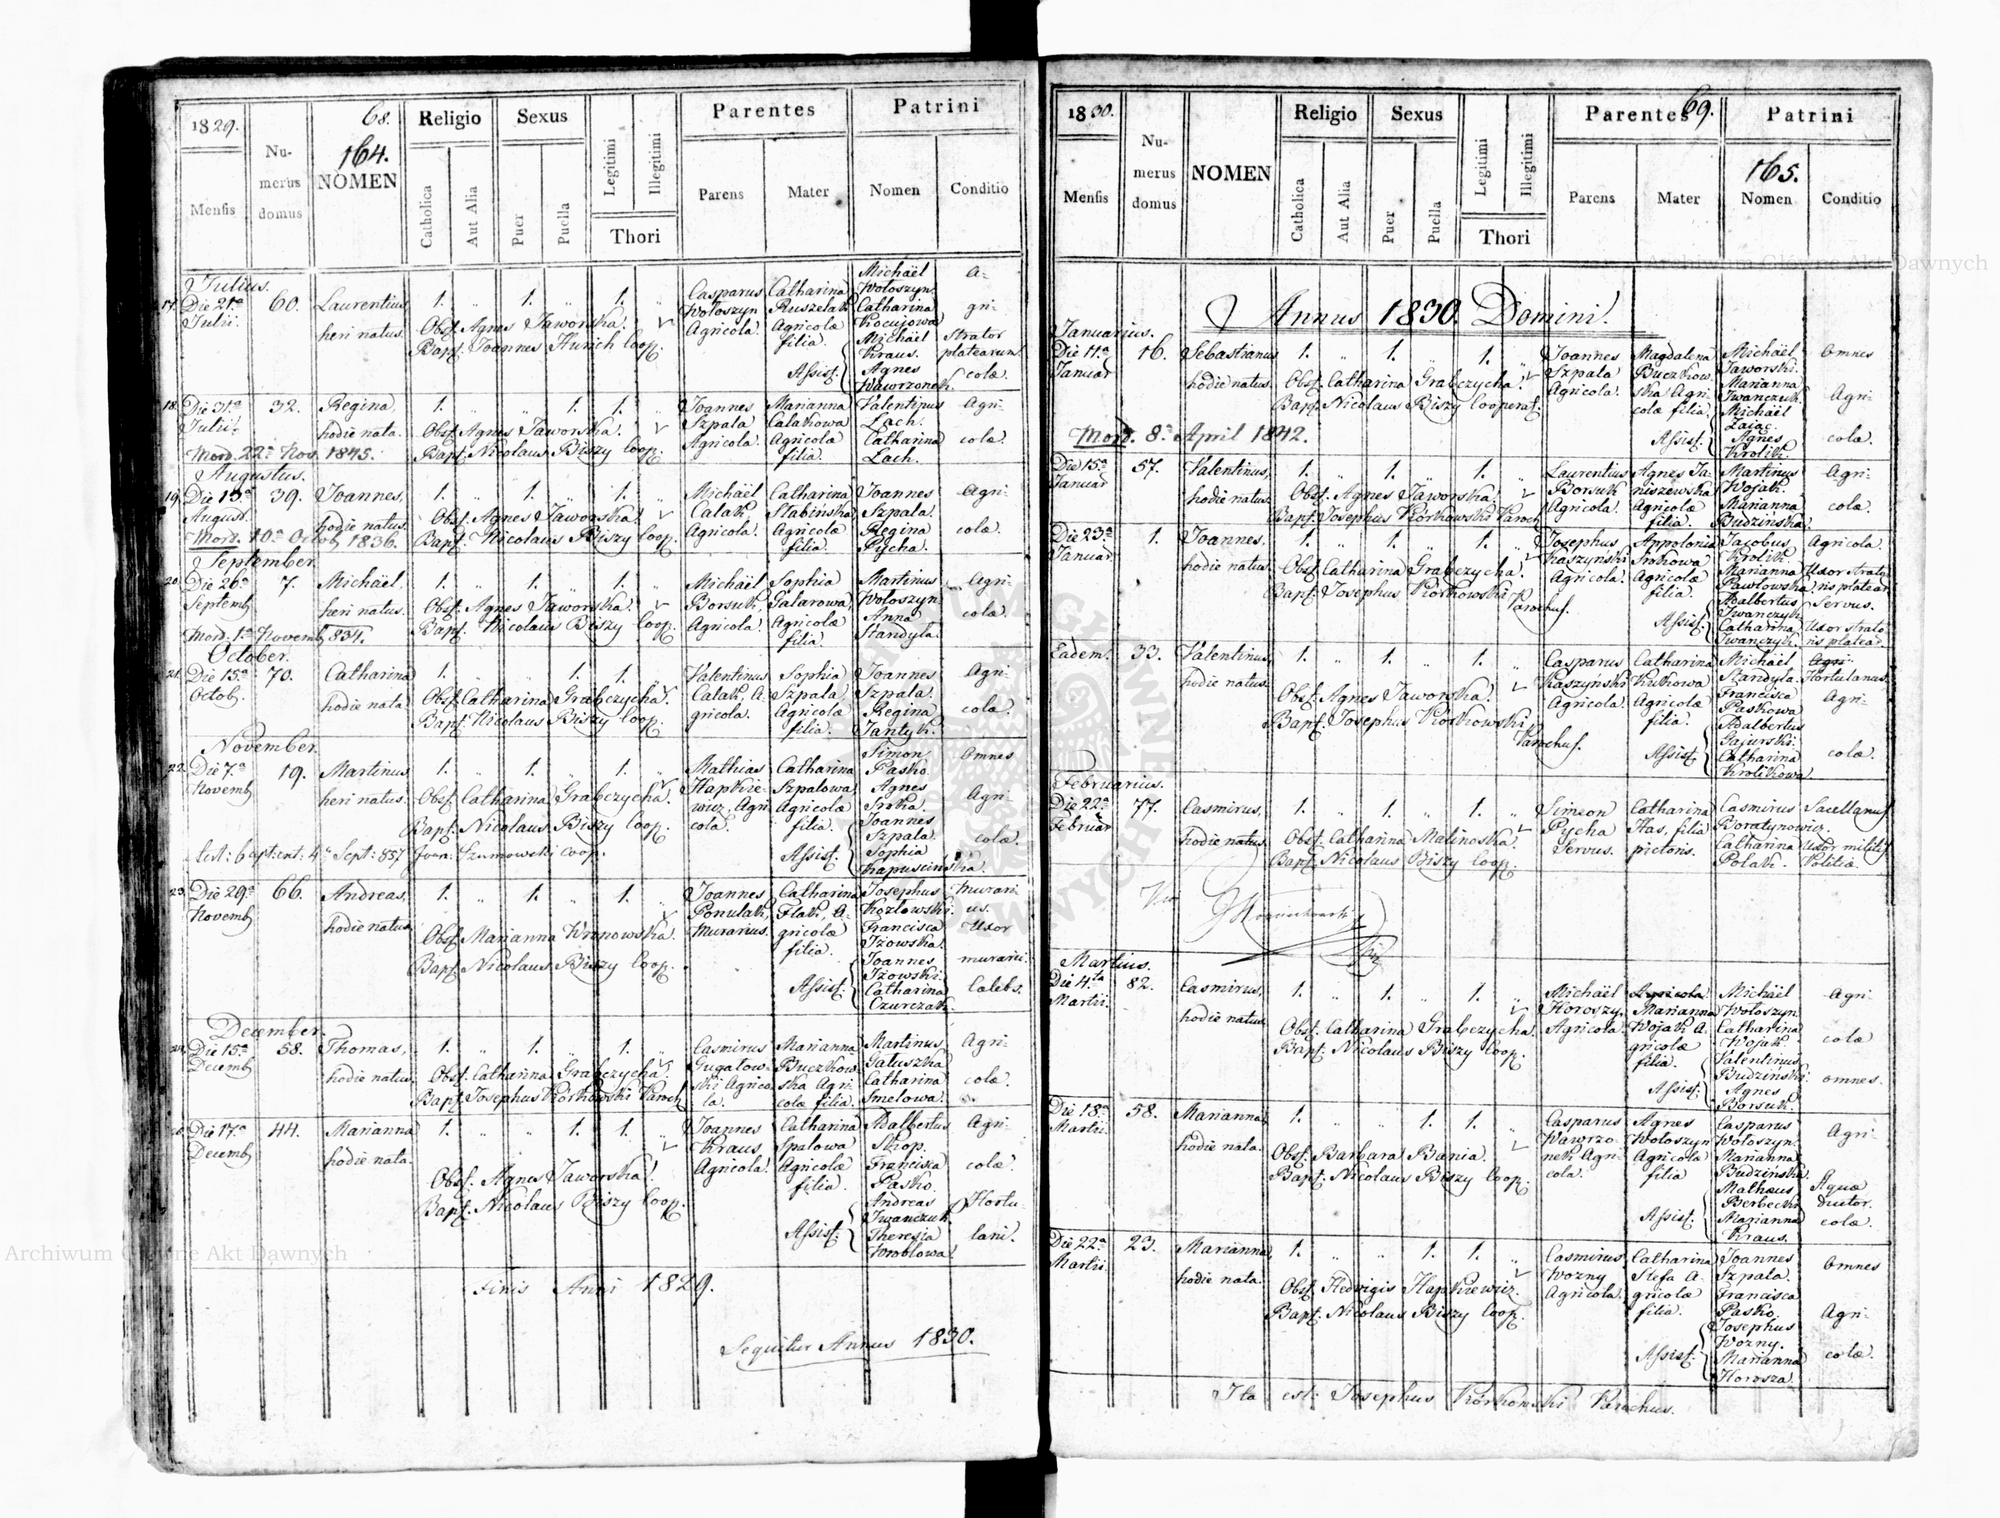 1829.
68.
164.
Religio Sexus Legitimi Illegitimi Parentes Patrini
Mensis
Numerus domus
NOMEN
Catholica Aut Alia Puer Puella Thori Parens Mater Nomen Conditio
Julius.
17. Die 21a Julii. 60. Laurentius heri natus. 1. „ 1. „ 1. „
Obst. Agnes Jaworska.
Bapt. Joannes coop.
Casparus Wołoszyn Agricola.
Catharina Agricolæ filia.
Michaël Wołoszyn.
Catharina
Michaël Kraus.
Assist. Agnes Wawrzonek.
Agri-
Strator platearum.
colæ.
18. Die 31a Julii. 32. Regina, hodie nata. 1. „ „ 1. 1. „
Obst. Agnes Jaworska.
Bapt. Nicolaus Biszy coop.
Mord. 22a Nov. 1845.
Joannes Szpala Agricola.
Marianna Całakowa Agricolæ filia.
Valentinus Lach.
Catharina Lach.
Agricolæ
Augustus.
19. Die 13a August. 39. Joannes, hodie natus. 1. „ 1. „ 1. „
Obst. Agnes Jaworska.
Bapt. Nicolaus Biszy Coop.
Mord. 10a Octob 1836.
Michaël Całak, Agricola.
Catharina Słabińska Agricolæ filia.
Joannes Szpala.
Regina Pycha.
Agricolæ.
September.
20. Die 26a Septemb 7. Michaël, heri natus. 1. „ 1. „ 1. „
Obst. Agnes Jaworska.
Bapt. Nicolaus Biszy Coop.
Mord. 1a Novemb 834.
Michaël Borsuk, Agricola.
Sophia Galarowa, Agricolæ filia.
Martinus Wołoszyn
Anna Standyla.
Agricolæ.
October.
21. Die 15a Octob. 70. Catharina hodie nata. 1. „ „ 1. 1. „
Obst. Catharina Grabczycha.
Bapt. Nicolaus Biszy Coop.
Valentinus Całak, Agricola.
Sophia Szpala, Agricolæ filia.
Joannes Szpala.
Regina Jantyk.
Agricolæ.
November.
22. Die 7a Novemb 19. Martinus, heri natus. 1. „ 1. „ 1. „
Obst. Catharina Grabczycha.
Bapt. Nicolaus Biszy Coop.
Mathias Hapkiewicz, Agricola.
Catharina Szpalowa Agricolæ filia.
Simon Pasko.
Agnes Sroka.
Joannes Szpala.
Assist. Sophia Kapuscinska.
Omnes Agricolæ.
23. Die 29a Novemb 66. Andreas, hodie natus 1. „ 1. „ 1. „
Obst. Marianna Wronowska.
Bapt. Nicolaus Biszy Coop.
Joannes Ponulak, Murarius.
Catharina Flak, Agricolæ filia.
Josephus Kozłowski.
Francisca Jzowska.
Joannes Jzowski.
Assist. Catharina Czurczak.
Murarius.
Uxor murarii.
Cælebs.
December.
24. Die 15a Decemb 58. Thomas, hodie natus 1. „ 1. „ 1. „
Obst. Catharina Grabczycha.
Bapt. Josephus Kórkowski Paroch
Casmirus Gugałowski Agricola.
Marianna Buczkowska Agricolæ filia.
Martinus Gałuszka
Catharina Smelowa.
Agricolæ.
Die 17a Decemb 44. Marianna hodie nata. 1. „ „ 1. 1. „
Obst. Agnes Jaworska.
Bapt. Nicolaus Biszy Coop.
Joannes Kraus Agricola.
Catharina Spalowa Agricolæ filia.
Adalbertus
Francisca Pasko.
Andreas Jwanczuk.
Assist. Theresia Wroblowa.
Agricolæ.
Hortulani.
Finis Anni 1829.
Sequitur Annus 1830.
1830.
69.
165.
Religio Sexus Legitimi Illegitimi Parentes Patrini
Mensis
Numerus domus
NOMEN
Catholica Aut Alia Puer Puella Thori Parens Mater Nomen Conditio
Annus 1830. Domini.
Januarius.
Die 11a Januar 16. Sebastianus hodie natus. 1. „ 1. „ 1. „
Obst. Catharina Grabczycha.
Bapt. Nicolaus Biszy Cooperat.
Mord. 8a April 1842.
Joannes Szpala Agricola.
Magdalena Buczkowska Agricolæ filia.
Michaël Jaworski.
Marianna Jwanczuk.
Michaël Zaiąc.
Assist. Agnes Krolik.
Omnes Agricolæ
Die 15a Januar 57. Valentinus, hodie natus. 1. „ 1. „ 1. „
Obst. Agnes Jaworska.
Bapt. Josephus Kórkowski Paroch
Laurentius Borsuk Agricola.
Agnes Janiszewska Agricolæ filia.
Martinus Wojak.
Marianna Budzińska.
Agricolæ.
Die 23a Januar 1. Joannes, hodie natus. 1. „ 1. „ 1. „
Obst. Catharina Grabczycha.
Bapt. Josephus Kórkowski Parochus.
Josephus Kaszyński Agricola.
Appolonia Srokowa Agricolæ filia.
Jacobus Krolik.
Marianna Pawłowska,
Adalbertus Jwanczyk.
Assist. Catharina Jwanczyk.
Agricola.
Uxor stratoris platear.
Servus.
Uxor stratoris platear.
Eadem. 33. Valentinus, hodie natus. 1. „ 1. „ 1. „
Obst. Agnes Jaworska.
Bapt. Josephus Kórkowski Parochus.
Casparus Kaszyński Agricola.
Catharina Kutkowa Agricolæ filia.
Michaël Standyla.
Francisca Paskowa
Adalbertus Gajurski.
Assist. Catharina Krolikowa.
Hortulanus.
Agricolæ.
Februarius.
Die 22a Februar 77. Casmirus, hodie natus 1. „ 1. „ 1. „
Obst. Catharina Malinoska.
Bapt. Nicolaus Biszy Coop.
Simeon Pycha Servus.
Catharina Has, filia pictoris.
Casmirus Boratynowicz.
Catharina Polak.
Sacellanus
Uxor militis Politiæ.
Martius.
Die 4ta Martii. 82. Casmirus, hodie natus 1. „ 1. „ 1. „
Obst. Catharina Grabczycha.
Bapt. Nicolaus Biszy Coop.
Michaël Horoszy, Agricola.
Marianna Wojak Agricolæ filia.
Michaël Wołoszyn.
Catharina Wojak.
Valentinus Budziński.
Assist. Agnes Borsuk.
Agricolæ omnes.
Die 18a Martii. 58. Marianna, hodie nata. 1. „ „ 1. 1. „
Obst. Barbara Bania.
Bapt. Nicolaus Biszy Coop.
Casparus Wawrzonek Agricola.
Agnes Wołoszyn Agricolæ filia
Casparus Wołoszyn.
Marianna Budzińska.
Mathæus Berbecki
Assist. Marianna Kraus.
Agri-
Aquæ ductor.
colæ.
Die 22a Martii. 23. Marianna, hodie nata. 1. „ „ 1. 1. „
Obst. Hedwigis Hapkiewicz.
Bapt. Nicolaus Biszy Coop.
Casmirus Wozny Agricola.
Catharina Stefa Agricolæ filia.
Joannes Szpala.
Francisca Pasko.
Josephus Wozny.
Assist. Marianna Horosza.
Omnes Agricolæ.
Ita est: Josephus Kórkowski Parochus.
Archiwum Główne Akt Dawnych
Archiwum Główne Akt Dawnych